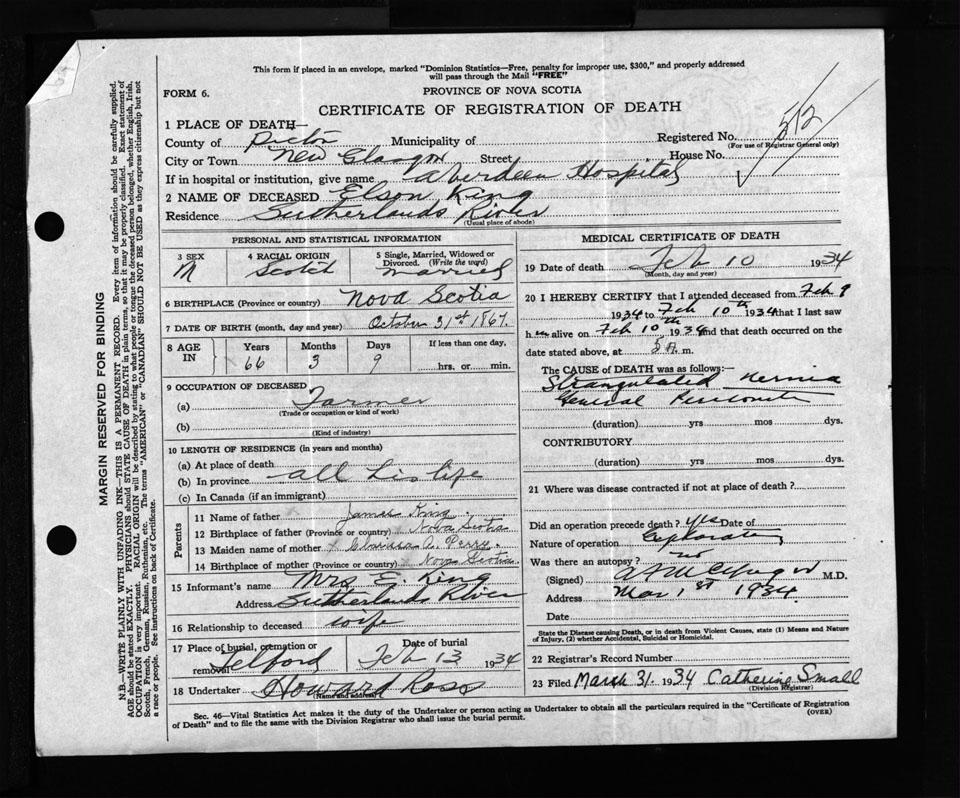 This form if placed in an envelope, marked "Dominion Statistics—Free, penalty for improper use, $300," and properly addressed
will pass through the Mail "FREE"
FORM 6.
PROVINCE OF NOVA SCOTIA
CERTIFICATE OF REGISTRATION OF DEATH
1 PLACE OF DEATH—
County of Pictou Municipality of Registered No. 512
(For use of Registrar General only)
City or Town New Glasgow Street House No.
If in hospital or institution, give name Aberdeen Hospital
2 NAME OF DECEASED Elson King
Residence Sutherlands River
(Usual place of abode)
PERSONAL AND STATISTICAL INFORMATION
3 SEX M
4 RACIAL ORIGIN Scotch
5 Single, Married, Widowed or Divorced. (Write the word) married
6 BIRTHPLACE (Province or country) Nova Scotia
7 DATE OF BIRTH (month, day and year) October 31st 1867.
8 AGE IN
Years Months Days If less than one day,
66 3 9 hrs. or min.
9 OCCUPATION OF DECEASED
(a) Farmer
(Trade or occupation or kind of work)
(b)
(Kind of industry)
10 LENGTH OF RESIDENCE (in years and months)
(a) At place of death
(b) In province all his life
(c) In Canada (if an immigrant)
Parents
11 Name of father James King
12 Birthplace of father (Province or country) Nova Scotia
13 Maiden name of mother A. Perry.
14 Birthplace of mother (Province or country) Nova Scotia
15 Informant's name Mrs E. King
Address Sutherlands River
16 Relationship to deceased wife
17 Place of burial, cremation or removal Telford
Date of burial Feb 13 1934
18 Undertaker Howard Ross
(Name and address)
MEDICAL CERTIFICATE OF DEATH
19 Date of death Feb 10 1934
(Month, day and year)
20 I HEREBY CERTIFY that I attended deceased from Feb 9
1934 to Feb 10th 1934 that I last saw
him alive on Feb 10th 1934 and that death occurred on
date stated above, at 5 A. m.
The CAUSE OF DEATH was as follows:
Strangulated Hernia
General Peritonitis
(duration) yrs mos dys.
CONTRIBUTORY
(duration) yrs mos dys.
21 Where was disease contracted if not at place of death?
Did an operation precede death? yes Date of
Nature of operation Exploratory
Was there an autopsy? no
(Signed) M.D.
Address Mar 1st 1934.
Date
State the Disease causing Death, or in death from Violent Causes, state (1) Means and Nature
of Injury, (2) whether Accidental, Suicidal or Homicidal.
22 Registrar's Record Number
23 Filed March 31 1934 Catherine Small
(Division Registrar)
Sec. 46—Vital Statistics Act makes it the duty of the Undertaker or person acting as Undertaker to obtain all the particulars required in the "Certificate of Registration
of Death" and to file the same with the Division Registrar who shall issue the burial permit. (OVER)
MARGIN RESERVED FOR BINDING
N.B.—WRITE PLAINLY WITH UNFADING INK—THIS IS A PERMANENT RECORD. Every item of information should be carefully supplied.
AGE should be stated EXACTLY. PHYSICIANS should STATE CAUSE OF DEATH in plain terms, so that it may be properly classified. Exact statement of
OCCUPATION is very important. RACIAL ORIGIN will be described by stating to what people or tongue the deceased person belonged, whether English, Irish,
Scotch, French, German, Russian, Ruthenian, etc. The terms "AMERICAN" or "CANADIAN" SHOULD NOT BE USED as they express citizenship but not
a race or people. See instructions on back of Certificate.